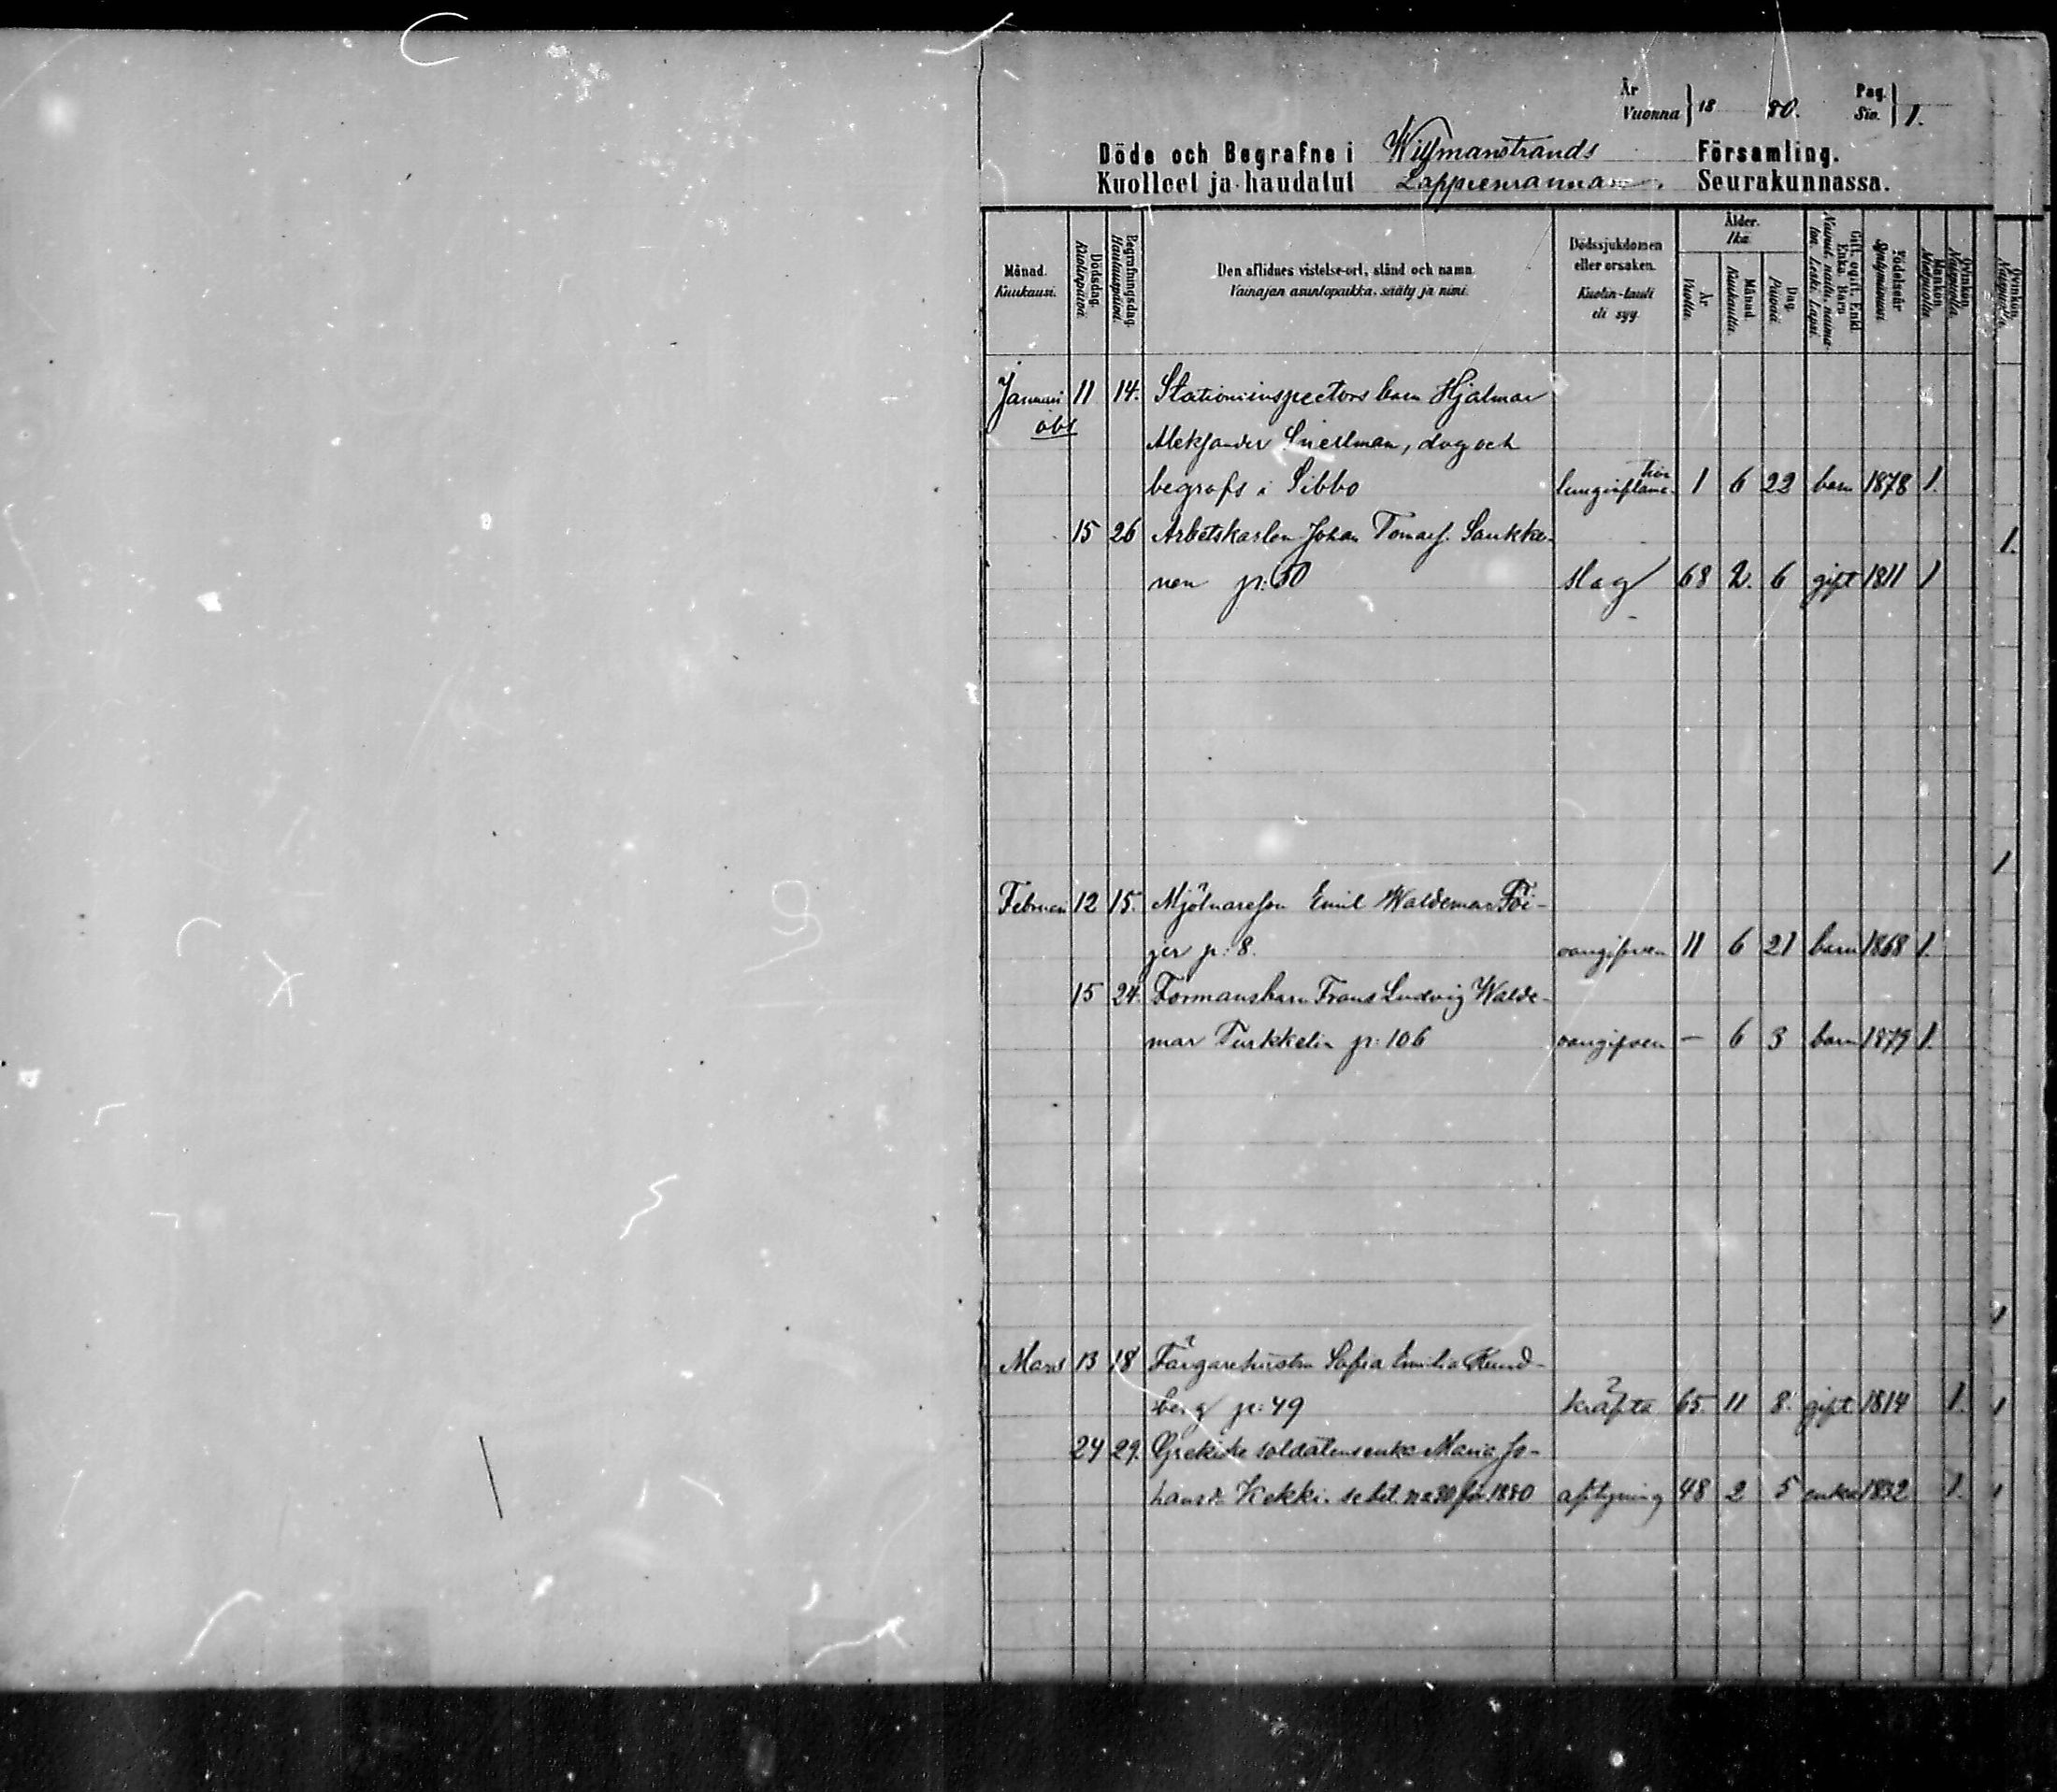 År
Vuonna } 18 80.
Pag.
Siv. } 1.
Döde och Begrafne i Willmanstrands Församling.
Kuolleet ja haudatut Lappeenrannan. Seurakunnassa.
Månad. Kuukausi.
Dödsdag. Kuolinpäivä.
Begrafningsdag. Hautauspäivä.
Den aflidnes vistelse-ort, stånd och namn.
Vainajan asuntopaikka, sääty ja nimi.
Dödssjukdomen eller orsaken.
Kuolin-tauti eli syy.
Ålder. Ikä.
År Vuotta.
Månad. Kuukautta.
Dag. Päivää.
Gift, ogift. Enkl. Enka. Barn
Nainut, naitu, naimaton. Leski. Lapsi.
Födelseår Syntymävuosi
Mankön. Miespuolia.
Qvinkön. Naispuolia.
Qvinkön. Naispuolia.
Januari 11 14. Stationinspectors barn Hjalmar
obs Aleksander Snellman, dog och
begrofs i Sibbo lunginflama- tion 1 6 22 barn 1878 1.
15 26 Arbetskarlen Johan Tomasf. Saukko- 1.
nen p: 50 slag 68 2. 6 gift 1811 1
1
Februari 12 15. Mjölnareson Emil Waldemar Föi-
jer p: 8. oangifven 11 6 21 barn 1868 1.
15 24. Formansbarn Frans Ludvig Walde-
mar Turkkelin p: 106 oangifven — 6 3 barn 1879 1.
1
Mars 13 18 Färgarehustru Sofia Emilia Rund-
berg p: 49 kräfta 65. 11 8. gift 1814 1. 1
24 29. Grekiske soldatens enka Maria Jo-
hansd. Kekki. se bil. no 30 för 1880 aftyning 48 2 5 enka 1832 1. 1